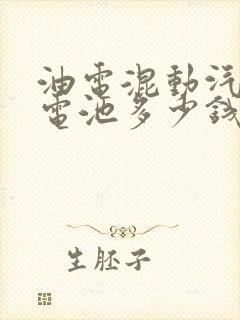 油電混動汽
電池多少錢
生胚子